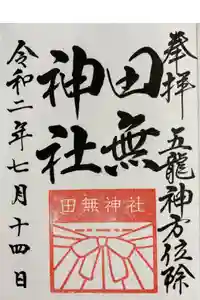 奉拝
五龍神方位除
田無
神社
田無神社
令和二年七月十四日